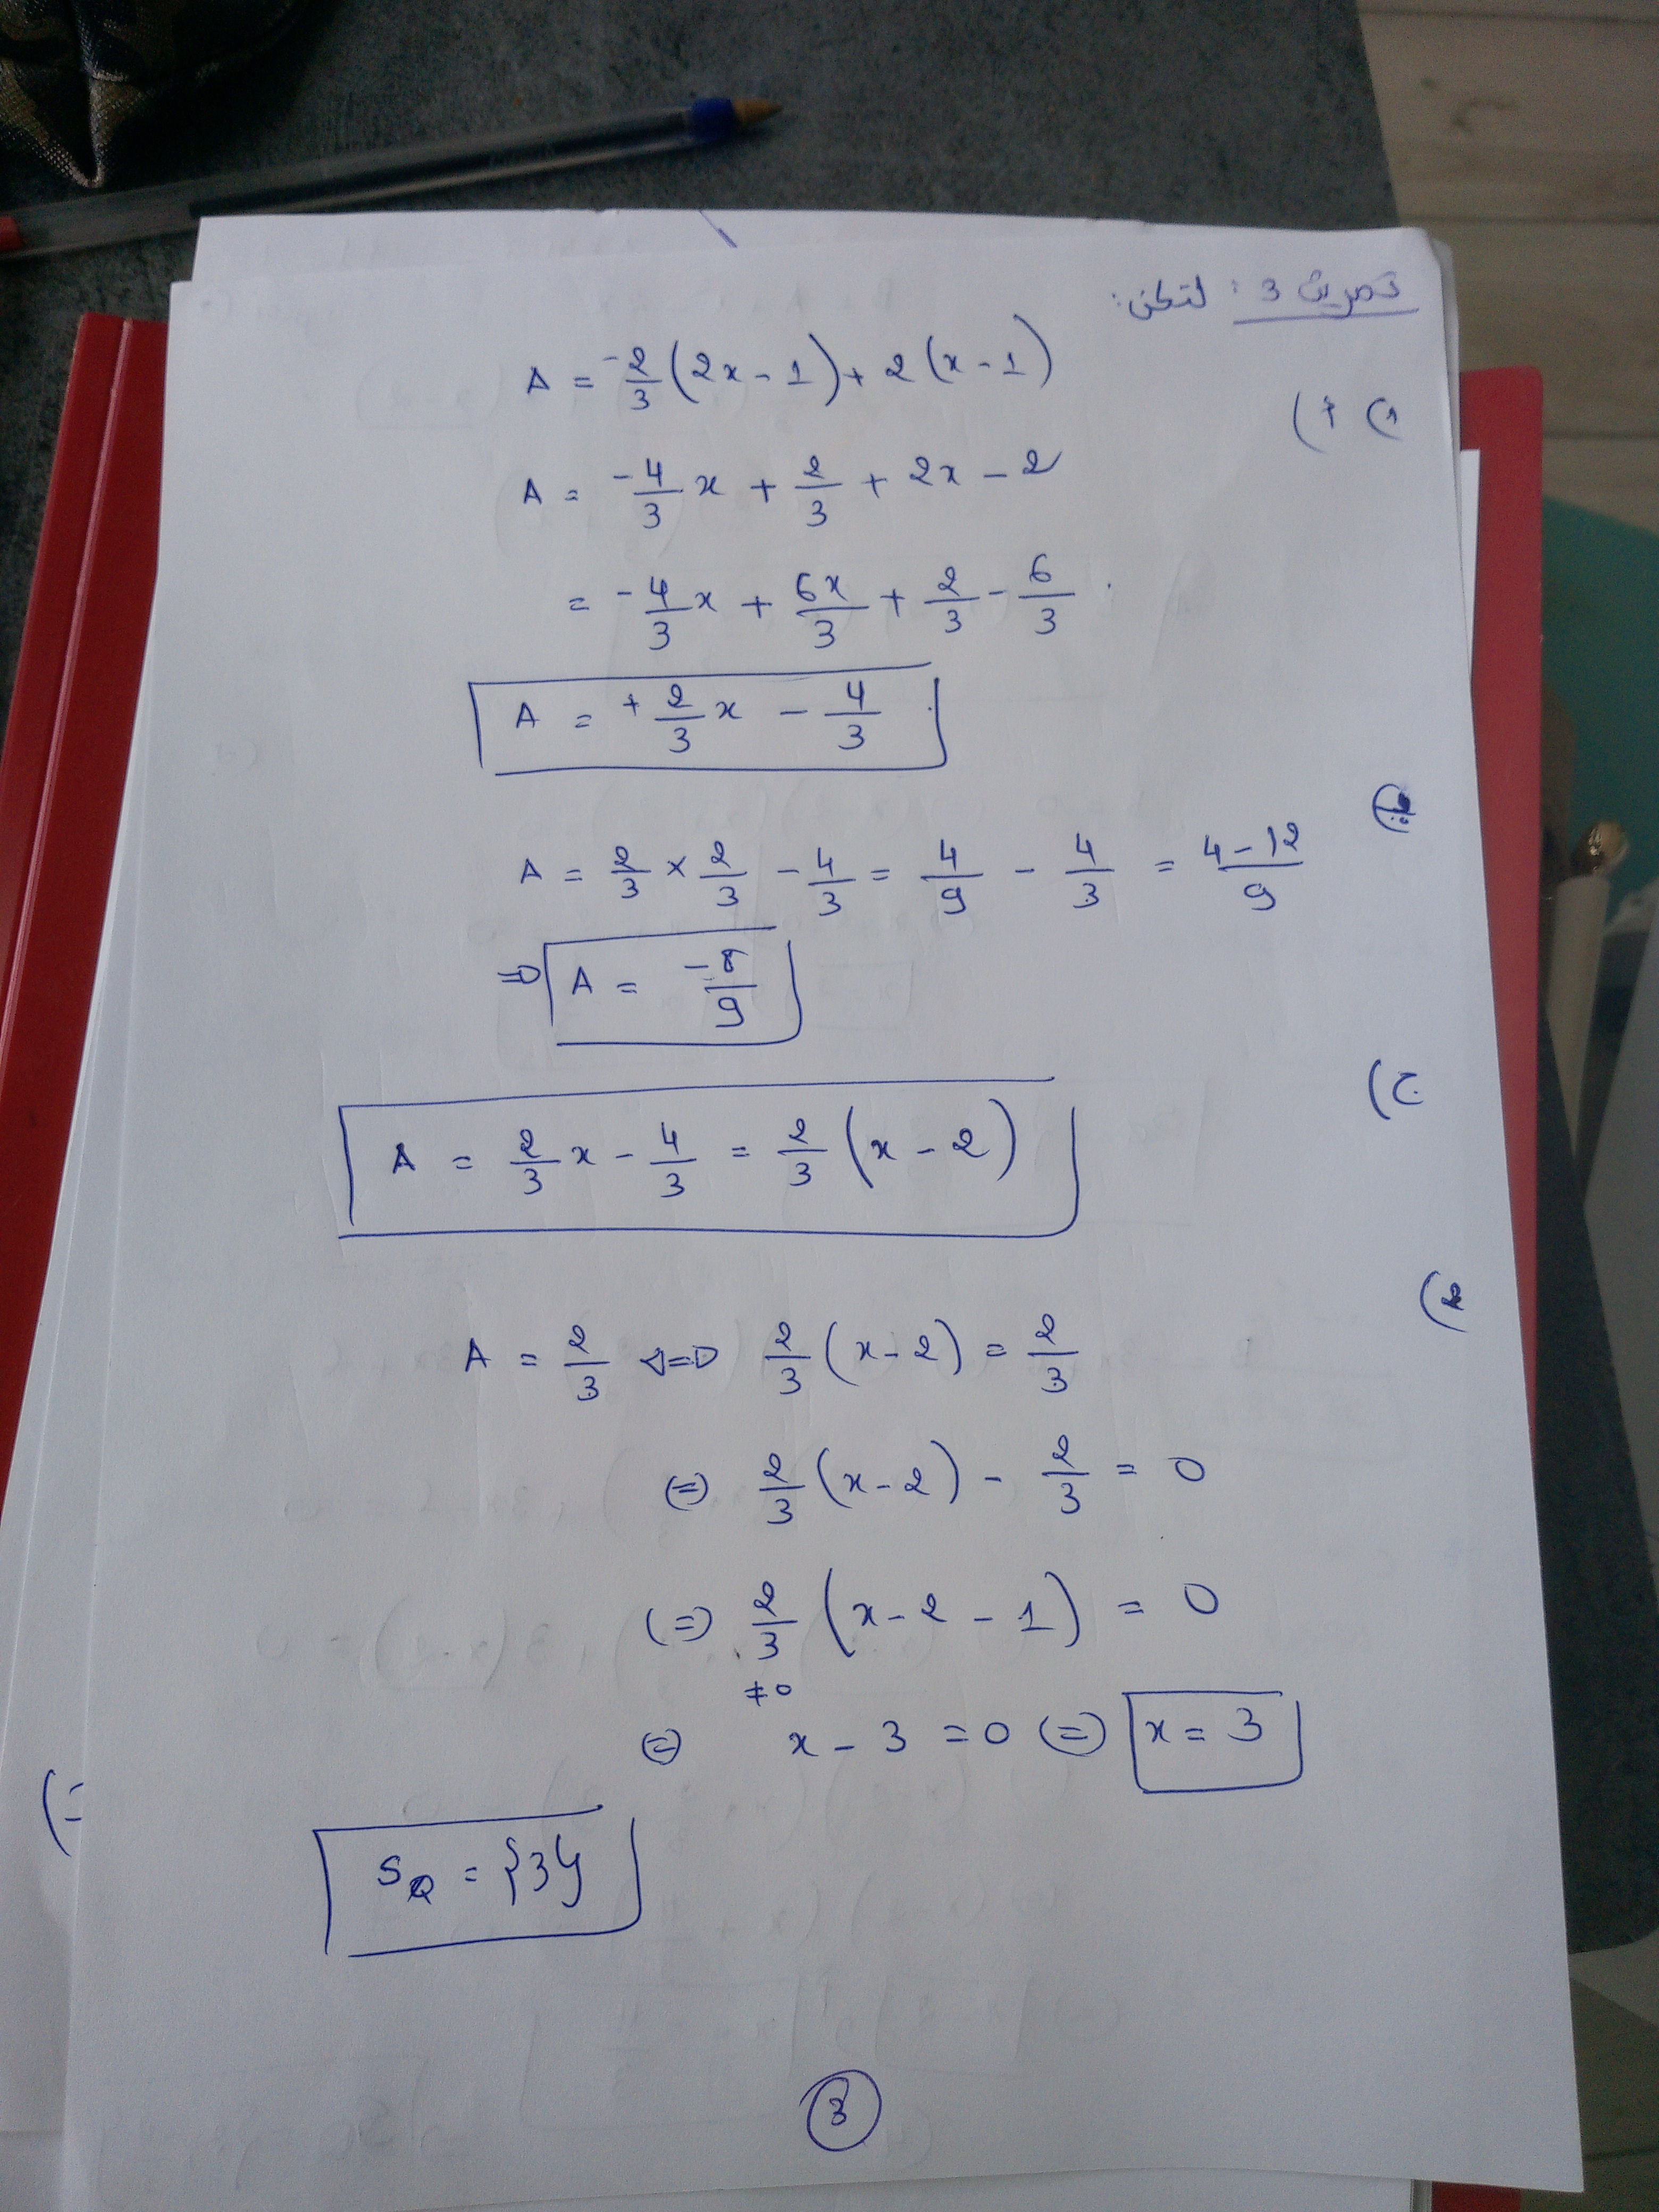 تمرين 3 : لتكن:
A = -2/3 (2x - 1) + 2 (x - 1)
1) أ)
A = -4/3 x + 2/3 + 2x - 2
= -4/3 x + 6x/3 + 2/3 - 6/3
A = +2/3 x - 4/3
ب)
A = 2/3 × 2/3 - 4/3 = 4/9 - 4/3 = 4-12/9
=> A = -8/9
ج)
A = 2/3 x - 4/3 = 2/3 (x - 2)
2)
A = 2/3 <=> 2/3 (x - 2) = 2/3
(=) 2/3 (x - 2) - 2/3 = 0
(=) 2/3 (x - 2 - 1) = 0
≠0
(=) x - 3 = 0 (=) x = 3
S_Q = {3}
3
(=